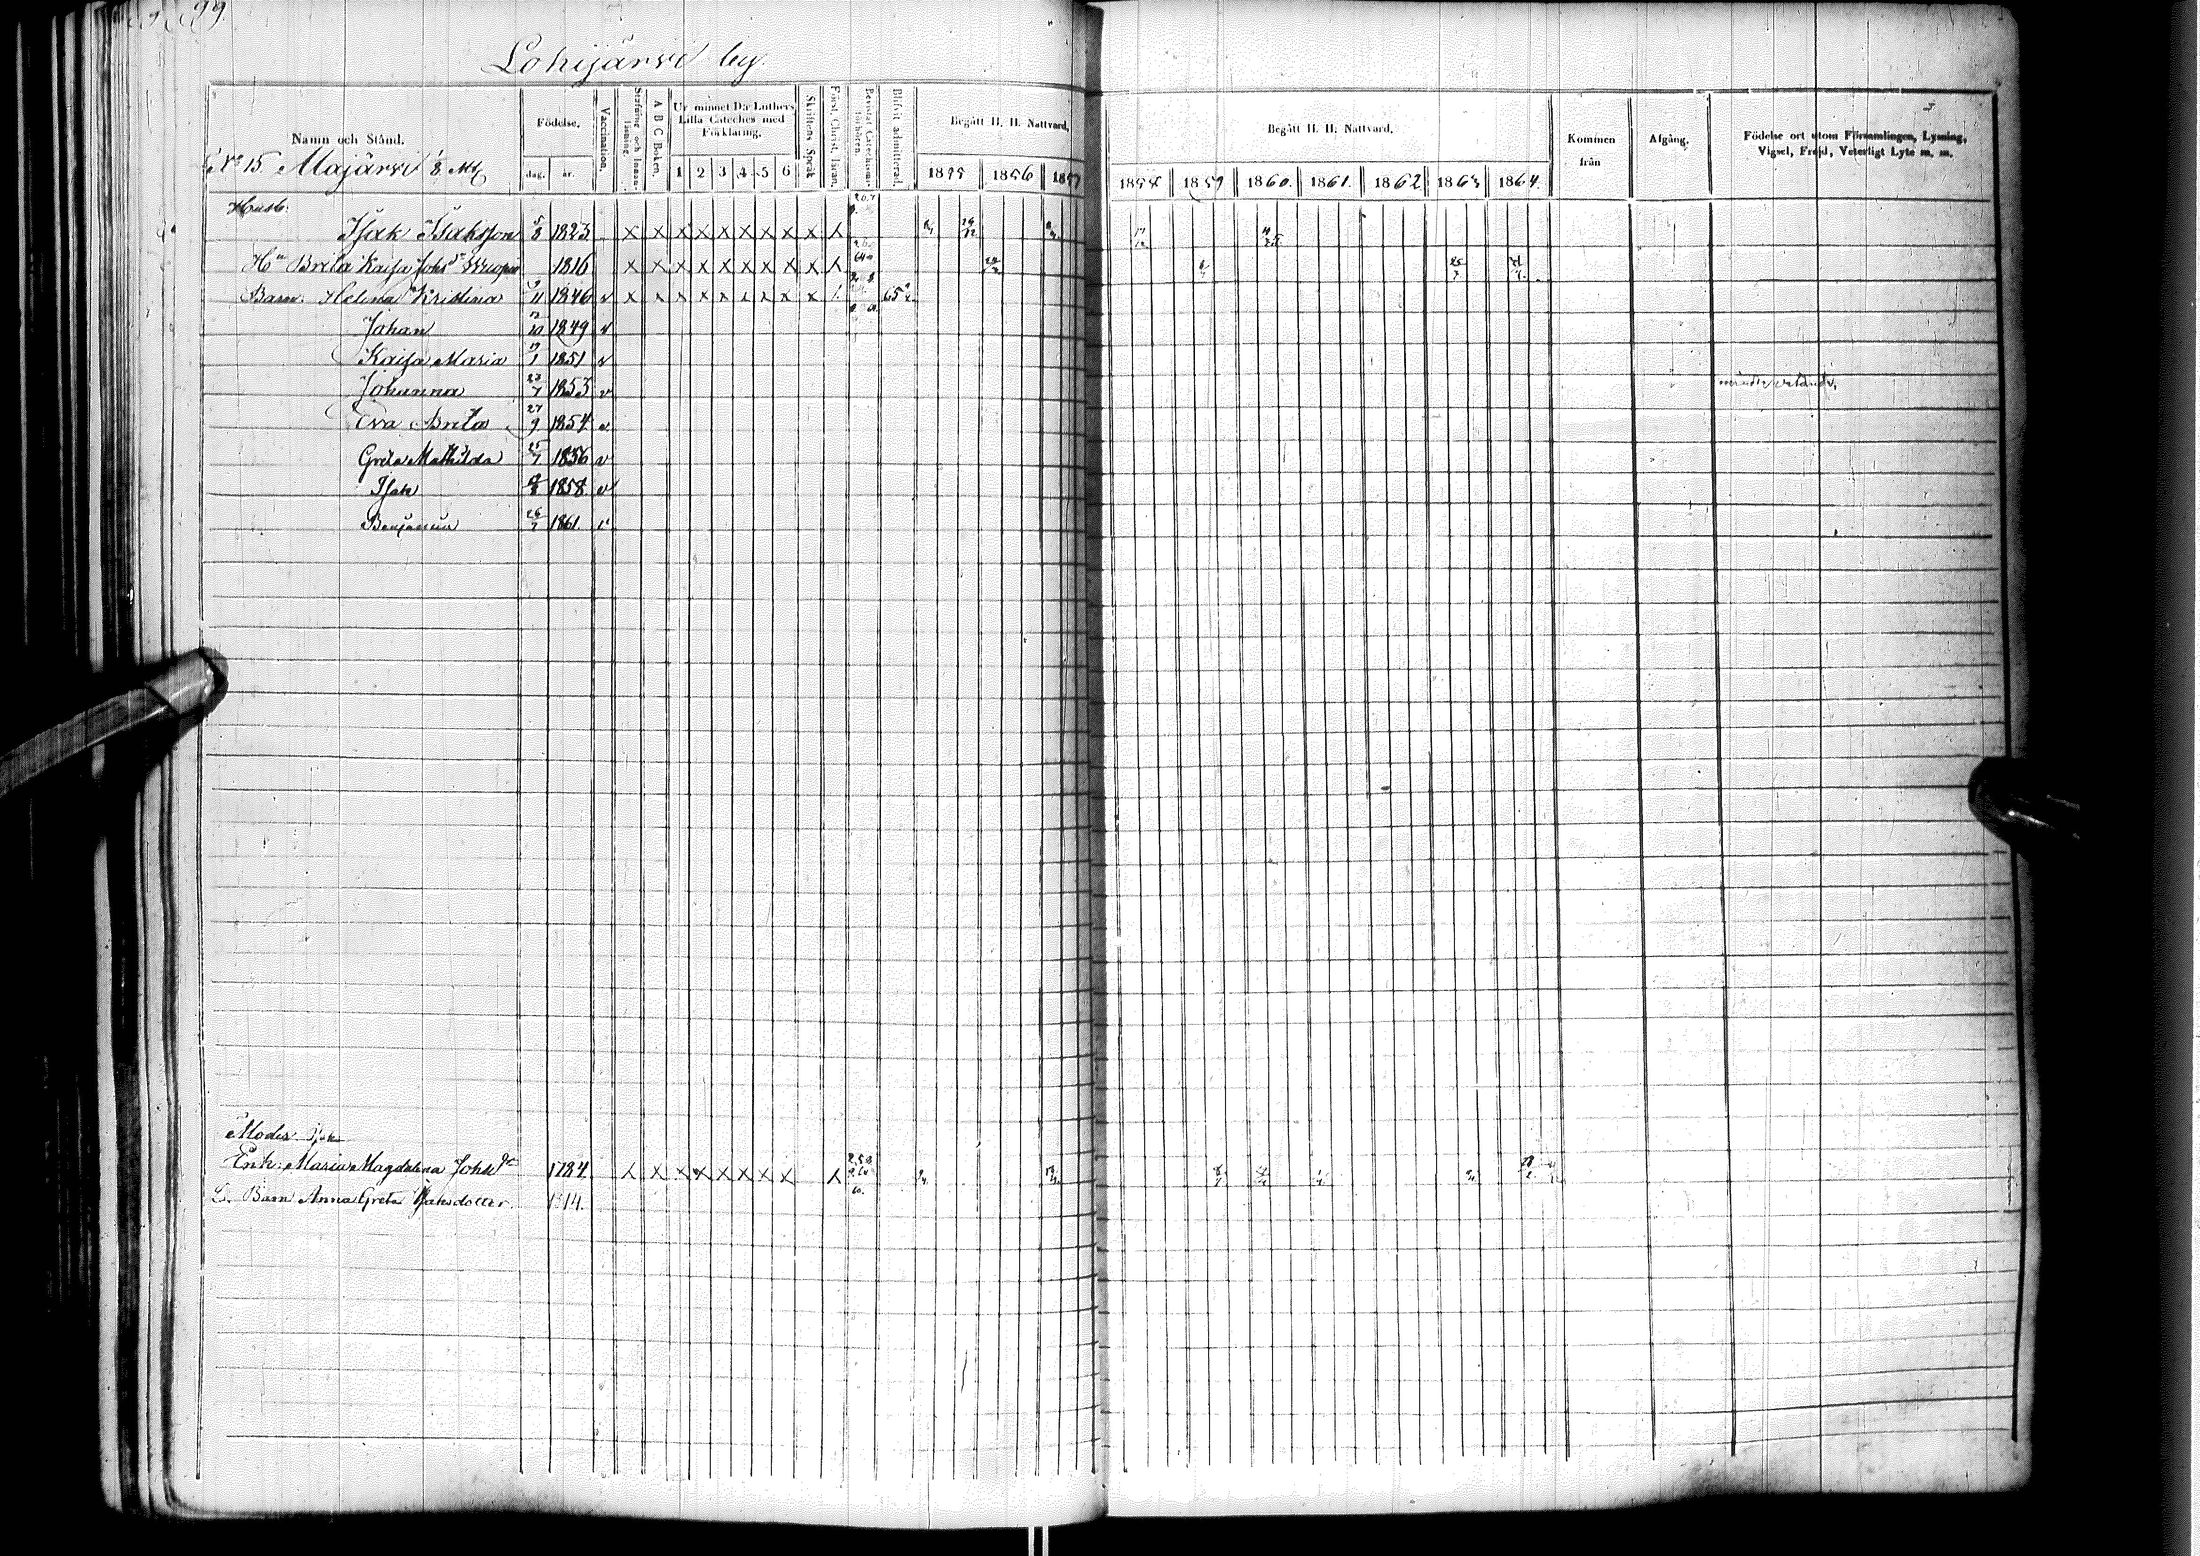 99.
Lohijärvi by.
Namn och Stånd. Födelse. Vaccination. Stafning och Innanläsning. A B C Boken. Ur minnet D:r Luthers Lilla Cateches med Förklaring. Skriftens Språk Först. Christ. läran. Bevistat Catechismiförhören. Blifvit admitterad. Begått H. H. Nattvard.
dag. år. 1 2 3 4 5 6 1855 1856 1857
Begått H. H. Nattvard. Kommen från Afgång. Födelse ort utom Församlingen, Lysning, Vigsel, Frejd, Veterligt Lyte m. m.
1858 1859 1860. 1861. 1862 1863 1864.
No 15. Majärvi 1/8 Mtl
Husb:
Isak Isaksson 5/8 1823. x x x x x x x x x
Hu Brita Kaisa Johsdr 1816 x x x x x x x x x
Barn. Helena Kristina 11 1846 v x x x x x x x x x 65
Johan 10 1849 v
Kaisa Maria 1 1851 v
Johanna 23/7 1853 v
Eva Brita 27/9 1854 v
Greta Mathilda 25/7 1856 v
Isak 1858 v
Benjamin 26/7 1861. v
Moder
Enk: Maria Magdalena Johsdr 1784. x x x x x x x x
Barn Anna Greta Isaksdotter. 1814.